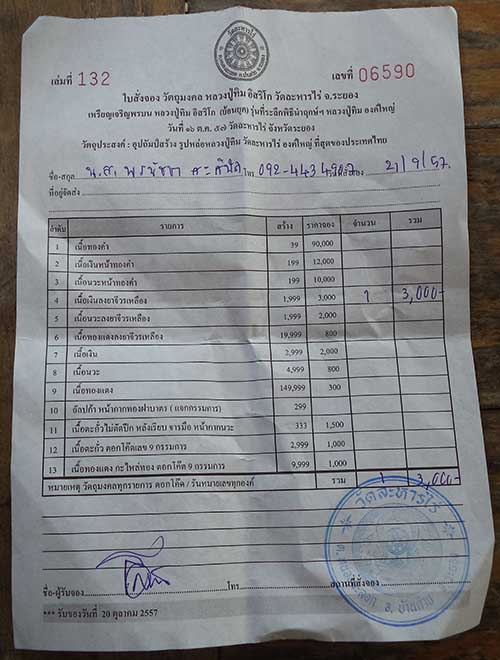 เล่มที่ 132
เลขที่ 06590
วัดละหารไร่
ใบสั่งจอง วัตถุมงคล หลวงปู่ทิม อิสริโก วัดละหารไร่ จ.ระยอง
เหรียญเจริญพรบน หลวงปู่ทิม อิสริโก (ย้อนยุค) รุ่นที่ระลึกพิธีนำฤกษ์ฯ หลวงปู่ทิม องค์ใหญ่
วันที่ ๑๖ ต.ค. ๕๗ วัดละหารไร่ จังหวัดระยอง
วัตถุประสงค์ : อุปถัมป์สร้าง รูปหล่อหลวงปู่ทิม วัดละหารไร่ องค์ใหญ่ ที่สุดของประเทศไทย
ชื่อ-สกุล น.ส. โทร 092-443 วันที่สั่งจอง 21/9/57.
ที่อยู่จัดส่ง
ลำดับ รายการ สร้าง ราคาจอง จำนวน รวม
1 เนื้อทองคำ 39 90,000
2 เนื้อเงินหน้าทองคำ 199 12,000
3 เนื้อนวะหน้าทองคำ 199 10,000
4 เนื้อเงินลงยาจีวรเหลือง 1,999 3,000 1 3,000-
5 เนื้อนวะลงยาจีวรเหลือง 1,999 2,000
6 เนื้อทองแดงลงยาจีวรเหลือง 19,999 800
7 เนื้อเงิน 2,999 2,000
8 เนื้อนวะ 4,999 800
9 เนื้อทองแดง 149,999 300
10 อัลปก้า หน้ากากทองฝาบาตร ( แจกกรรมการ) 299
11 เนื้อตะกั่วไม่ตัดปีก หลังเรียบ จารมือ หน้ากากนวะ 333 1,500
12 เนื้อตะกั่ว ตอกโค๊ตเลข 9 กรรมการ 2,999 1,000
13 เนื้อทองแดง กะไหล่ทอง ตอกโค๊ต 9 กรรมการ 9,999 1,000
หมายเหตุ วัตถุมงคลทุกรายการ ตอกโค๊ต / รันหมายเลขทุกองค์ รวม 1 3,000-
วัดละหารไร่
ชื่อ-ผู้รับจอง โทร สถานที่สั่งจอง
*** รับของวันที่ 20 ตุลาคม 2557